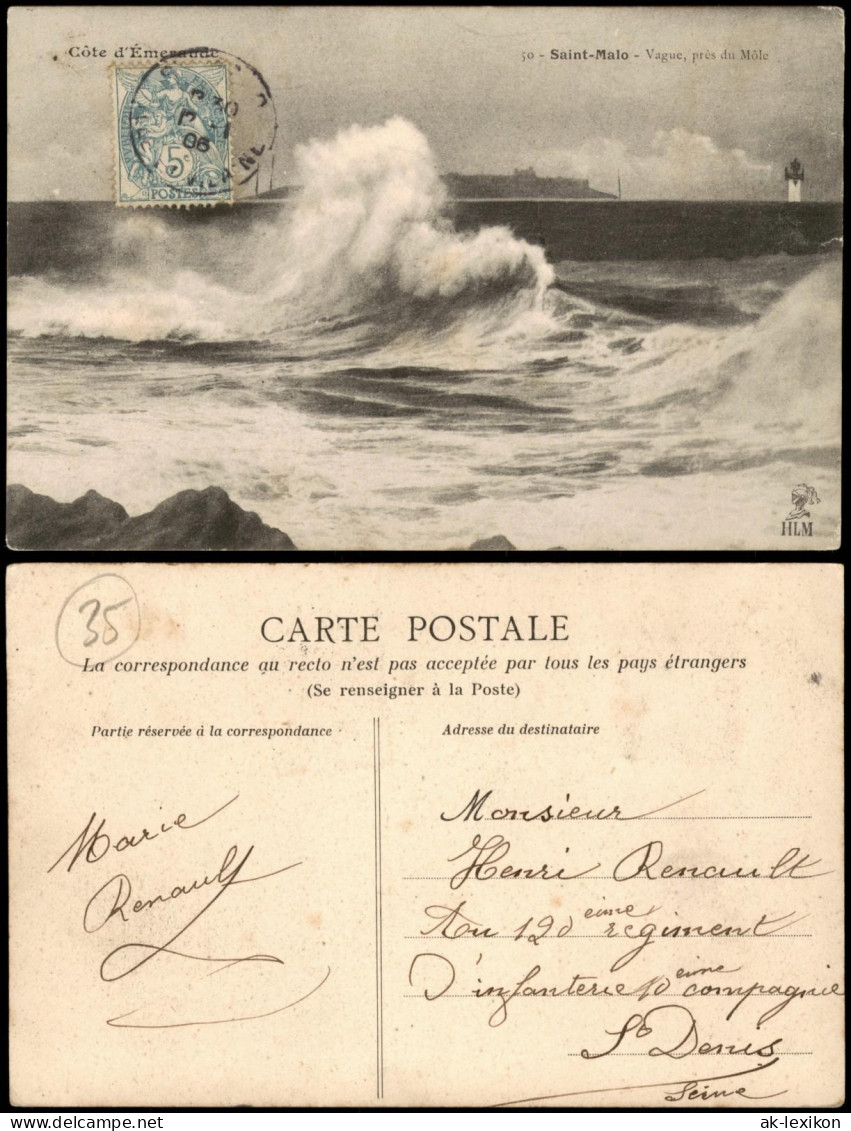 Côte d'Émeraude
50 - Saint-Malo - Vague, près du Môle
5c
POSTES
06
HLM
35
CARTE POSTALE
La correspondance au recto n'est pas acceptée par tous les pays étrangers
(Se renseigner à la Poste)
Partie réservée à la correspondance
Adresse du destinataire
Marie
Renault
Monsieur
Henri Renault
Au 120 eime regiment
D'infanterie 10 eime compagnie
St Denis
Seine
ansichtskarten-lexikon.de
ak-lexikon.com